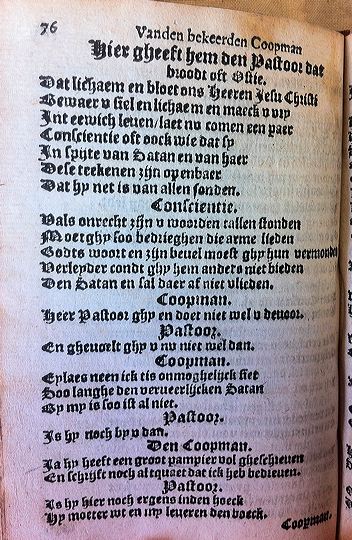 76
Vanden bekeerden Coopman
Hier gheeft hem den Pastoor dat
broodt oft Ostie.
Dat lichaem en bloet ons Heeren Jesu Christi
Bewaer v siel en lichaem en maeck v vry
Int eewich leven/laet nu comen een paer
Conscientie oft oock wie dat sy
In spijte van Satan en van haer
Dese teekenen zijn openbaer
Dat hy net is van allen sonden.
Conscientie.
Vals onrecht zijn v woorden tallen stonden
Moet ghy soo bedrieghen die arme lieden
Godts woort en zijn bevel moest ghy hun vermonden
Verleyder condt ghy hem anders niet bieden
Den Satan en sal daer af niet vlieden.
Coopman.
Heer Pastoor ghy en doet niet wel v devoor.
Pastoor.
En ghevoelt ghy v nv niet wel dan.
Coopman.
Eylaes neen ick tis onmoghelijck siet
Soo langhe den verveerlijcken Satan
By my is soo ist al niet.
Pastoor.
Is hy noch by v dan.
Den Coopman.
Ja hy heeft een groot pampier vol gheschreven
En schrijft noch al tquaet dat ick heb bedreven.
Pastoor.
Is hy hier noch ergens inden hoeck
Hy moeter wt en my leveren den boeck.
Coopman.